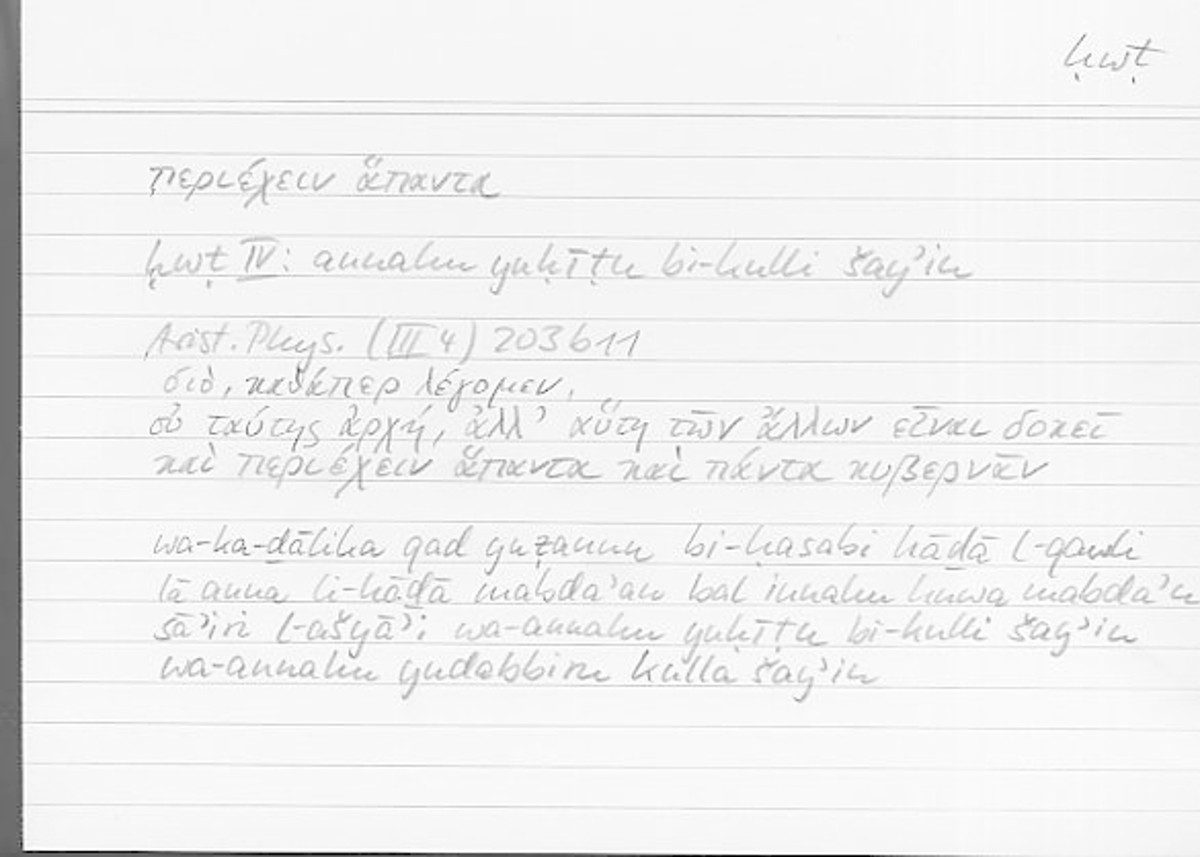 ḥwṭ
περιέχειν ἅπαντα
ḥwṭ IV: annahu yuḥīṭu bi-kulli šayʾin
Arist. Phys. (III 4) 203b11
διὸ, καθάπερ λέγομεν,
οὐ ταύτης ἀρχή, ἀλλ’ αὕτη τῶν ἄλλων εἶναι δοκεῖ
καὶ περιέχειν ἅπαντα καὶ πάντα κυβερνᾶν
wa-ka-ḏālika qad yuẓannu bi-ḥasabi hāḏā l-qauli
lā anna li-hāḏā mabdaʾan bal innahu huwa mabdaʾu
sāʾiri l-ašyāʾi wa-annahu yuḥīṭu bi-kulli šayʾin
wa-annahu yudabbiru kulla šayʾin